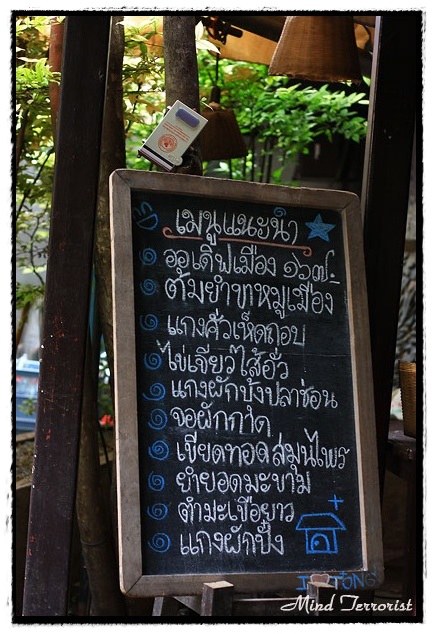 เมนูแนะนำ
ออเดิฟเมือง ๑๖๗.-
ต้มยำขาหมูเมือง
แกงคั่วเห็ดถอบ
ไข่เจียวไส้อั่ว
แกงผักบุ้งปลาช่อน
จอผักกาด
เขียดทอดสมุนไพร
ยำยอดมะขาม
ตำมะเขือยาว
แกงผักปั๋ง
Mind Terrorist